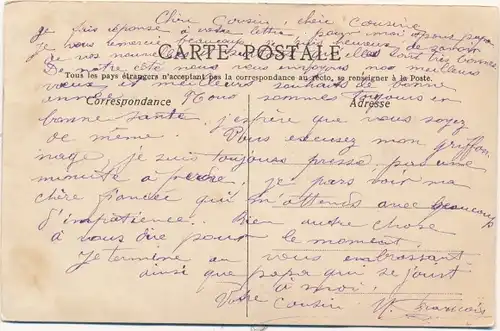 Cher Cousin, chère Cousine
je fais réponse à votre lettre pour moi et pour papa
je vous remercie beaucoup, je suis heureux de savoir
de vos nouvelles, qui sont toujours très bonnes
CARTE POSTALE
De notre côté nous vous envoyons nos meilleurs
Tous les pays étrangers n'acceptant pas la correspondance au recto, se renseigner à la Poste.
vœux et meilleurs souhaits de bonne
année. Nous sommes toujours en
Correspondance
Adresse
bonne santé, j'espère que vous soyez
de même. Vous excusez mon griffon
nage, je suis toujours pressé, pas une
minute à perdre, je pars voir ma
chère fiancée qui m'attends avec beaucoup
d'impatience. Rien autre chose
à vous dire pour le moment.
Je termine en vous embrassant
ainsi que papa qui se joint
à moi.
Votre Cousin